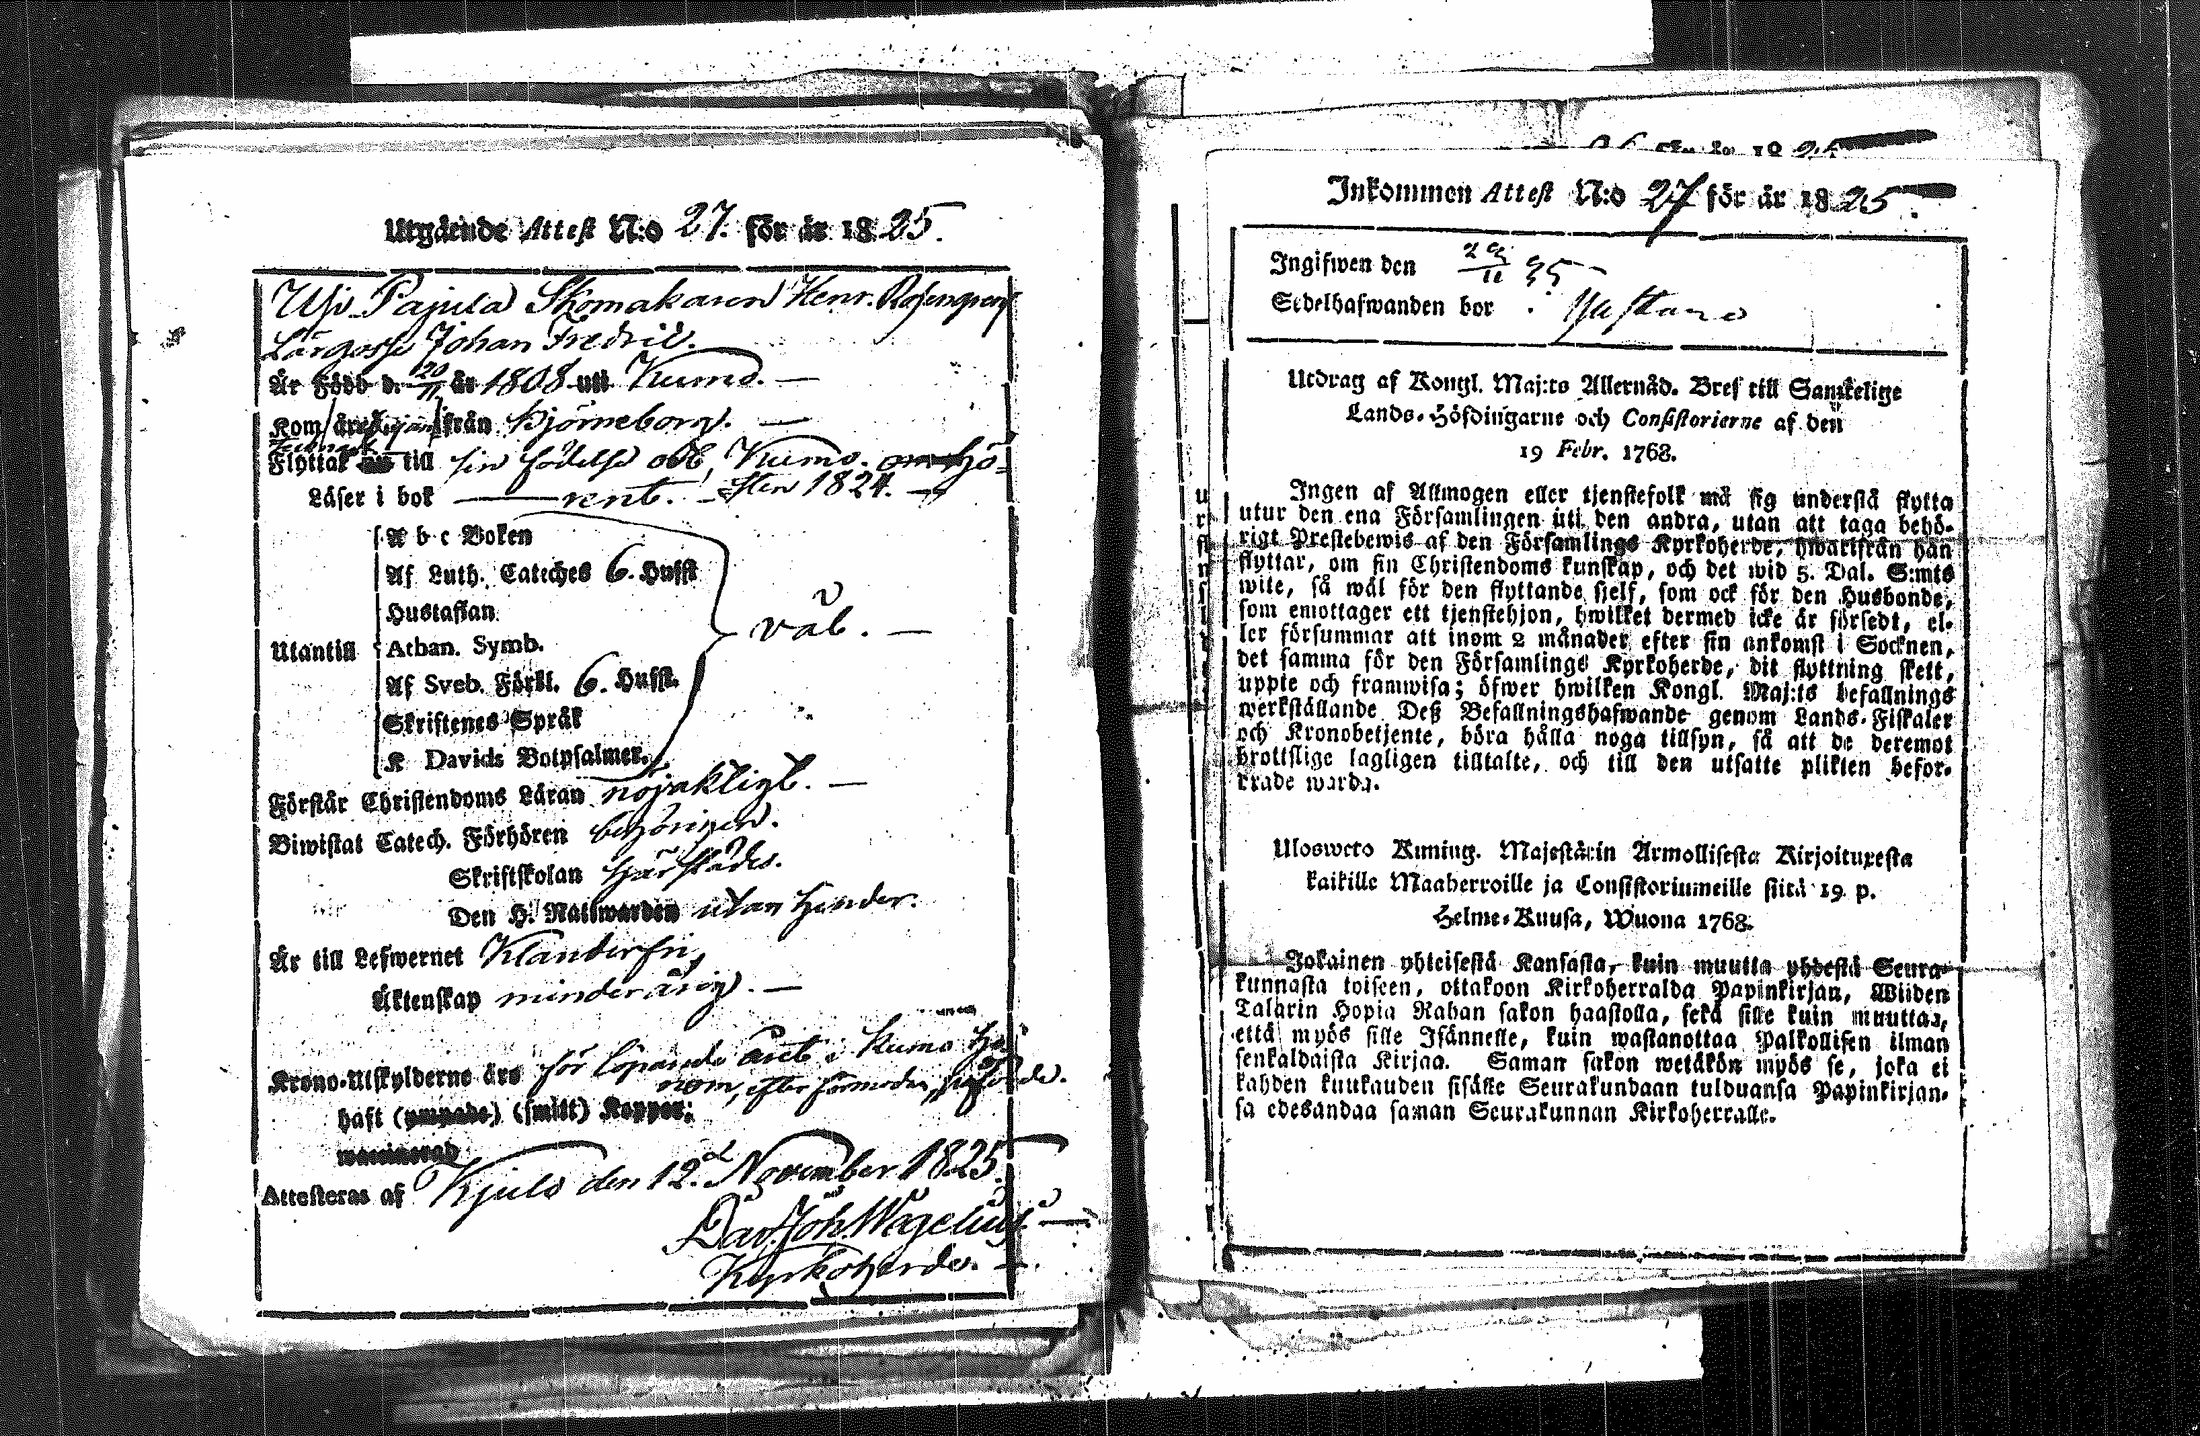 Utgående Attest N:o 27. för år 1825.
Pajula Skomakaren Henr. Rosengrens
Lärgosse Johan Fredric.
Är Född d. 20/11 år 1808 uti Kumo. —
Kom från Björneborg. —
Flyttat till sin födelse ort, Kumo. om hö-
Läser i bok — rent. — sten 1824. —
A b c Boken
Af Luth. Cateches 6. Hufst
Hustaflan
väl. —
Utantill Athan. Symb.
Af Sveb. Förkl. 6. Hufst.
Skriftenes Språk
K Davids Botpsalmer.
Förstår Christendoms Läran nöjaktigt. —
Biwistat Catech. Förhören behörigen.
Skriftskolan härstädes.
Den H. Nattwarden utan hinder.
Är till Lefwernet Klanderfri,
Äktenskap minderårig. —
Krono-Utskylderne äro för löpande året i Kumo
efter förmodan,
haft (ympade) (smitt) Koppor:
waccinerad
Attesteras af Kjulo den 12.d November 1825.
Dav. Joh. Wagelius. —
Kyrkoherde. —
Inkommen Attest N:o 27 för år 1825.
Ingifwen den 29/11 25
Sedelhafwanden bor
Utdrag af Kongl. Maj:ts Allernåd. Bref till Samtelige
Lands-Höfdingarne och Consistorierne af den
19 Febr. 1768.
Ingen af Allmogen eller tjenstefolk må sig understå flytta
utur den ena Församlingen uti den andra, utan att taga behö-
rigt Prestebewis af den Församlings Kyrkoherde, hwarifrån han
flyttar, om sin Christendoms kunskap, och det wid 5. Dal. S:mts
wite, så wäl för den flyttande sjelf, som ock för den Husbonde,
som emottager ett tjenstehjon, hwilket dermed icke är försedt, el-
ler försummar att inom 2 månader efter sin ankomst i Socknen,
det samma för den Församlings Kyrkoherde, dit flyttning skett,
uppte och framwisa; öfwer hwilken Kongl. Maj:ts befallnings
werkställande Deß Befallningshafwande genom Lands-Fiskaler
och Kronobetjente, böra hålla noga tillsyn, så att de deremot
brottslige lagligen tilltalte, och till den utsatte plikten befor-
drade warda.
Uloswcto Kuning. Majestätin Armollisesta Kirjoituxesta
kaikille Maaherroille ja Consistoriumeille siitä 19 p.
Helme-Kuusa, Wuona 1768.
Jokainen yhteisestä Kansasta, kuin muutta yhdestä Seura-
kunnasta toiseen, ottakoon Kirkoherralda Papinkirjan, Wiiden
Talarin Hopia Rahan sakon haastolla, sekä sille kuin muuttaa,
että myös sille Isännelle, kuin wastanottaa Palkollisen ilman
senkaldaista Kirjaa. Saman sakon wetäkön myös se, joka ei
kahden kuukauden sisälle Seurakundaan tulduansa Papinkirjan-
sa edesandaa saman Seurakunnan Kirkoherralle.